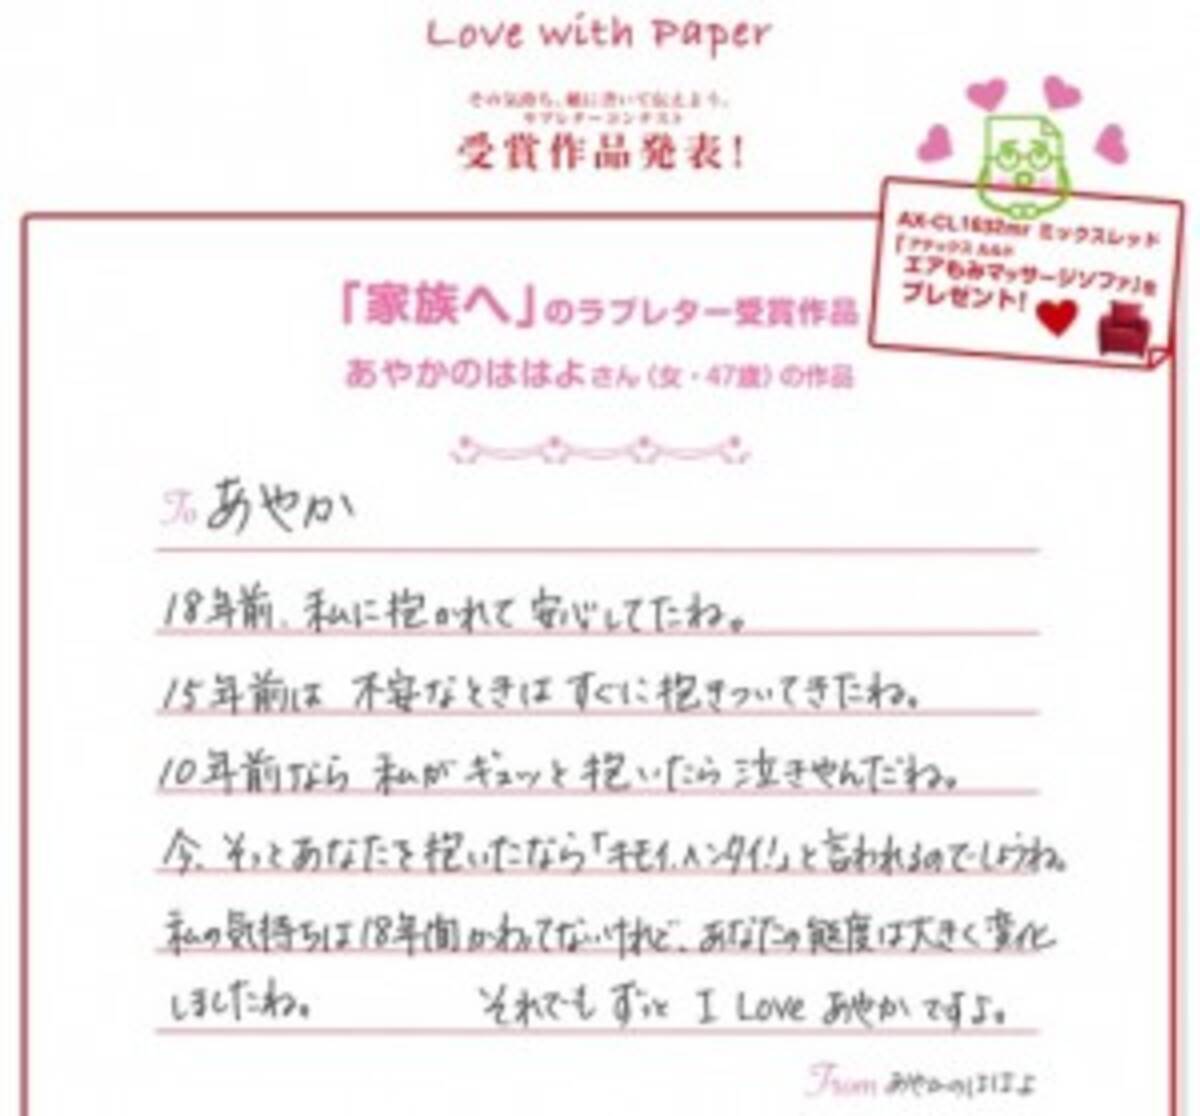 Love with Paper
その気持ち、紙に書いて伝えよう。
ラブレターコンテスト
受賞作品発表！
AX-CL1632mr ミックスレッド
「アテックス ルルド
エアもみマッサージソファ」を
プレゼント！
「家族へ」のラブレター受賞作品
あやかのははよさん（女・47歳）の作品
To あやか
18年前、私に抱かれて安心してたね。
15年前は 不安なときは すぐに抱きついてきたね。
10年前なら 私がギュッと抱いたら泣きやんだね。
今、そっとあなたを抱いたなら「キモイ、ヘンタイ！」と言われるのでしょうね。
私の気持ちは18年間かわってないけれど、あなたの態度は大きく変化
しましたね。 それでも ずっと I Love あやかですよ。
From あやかのははよ